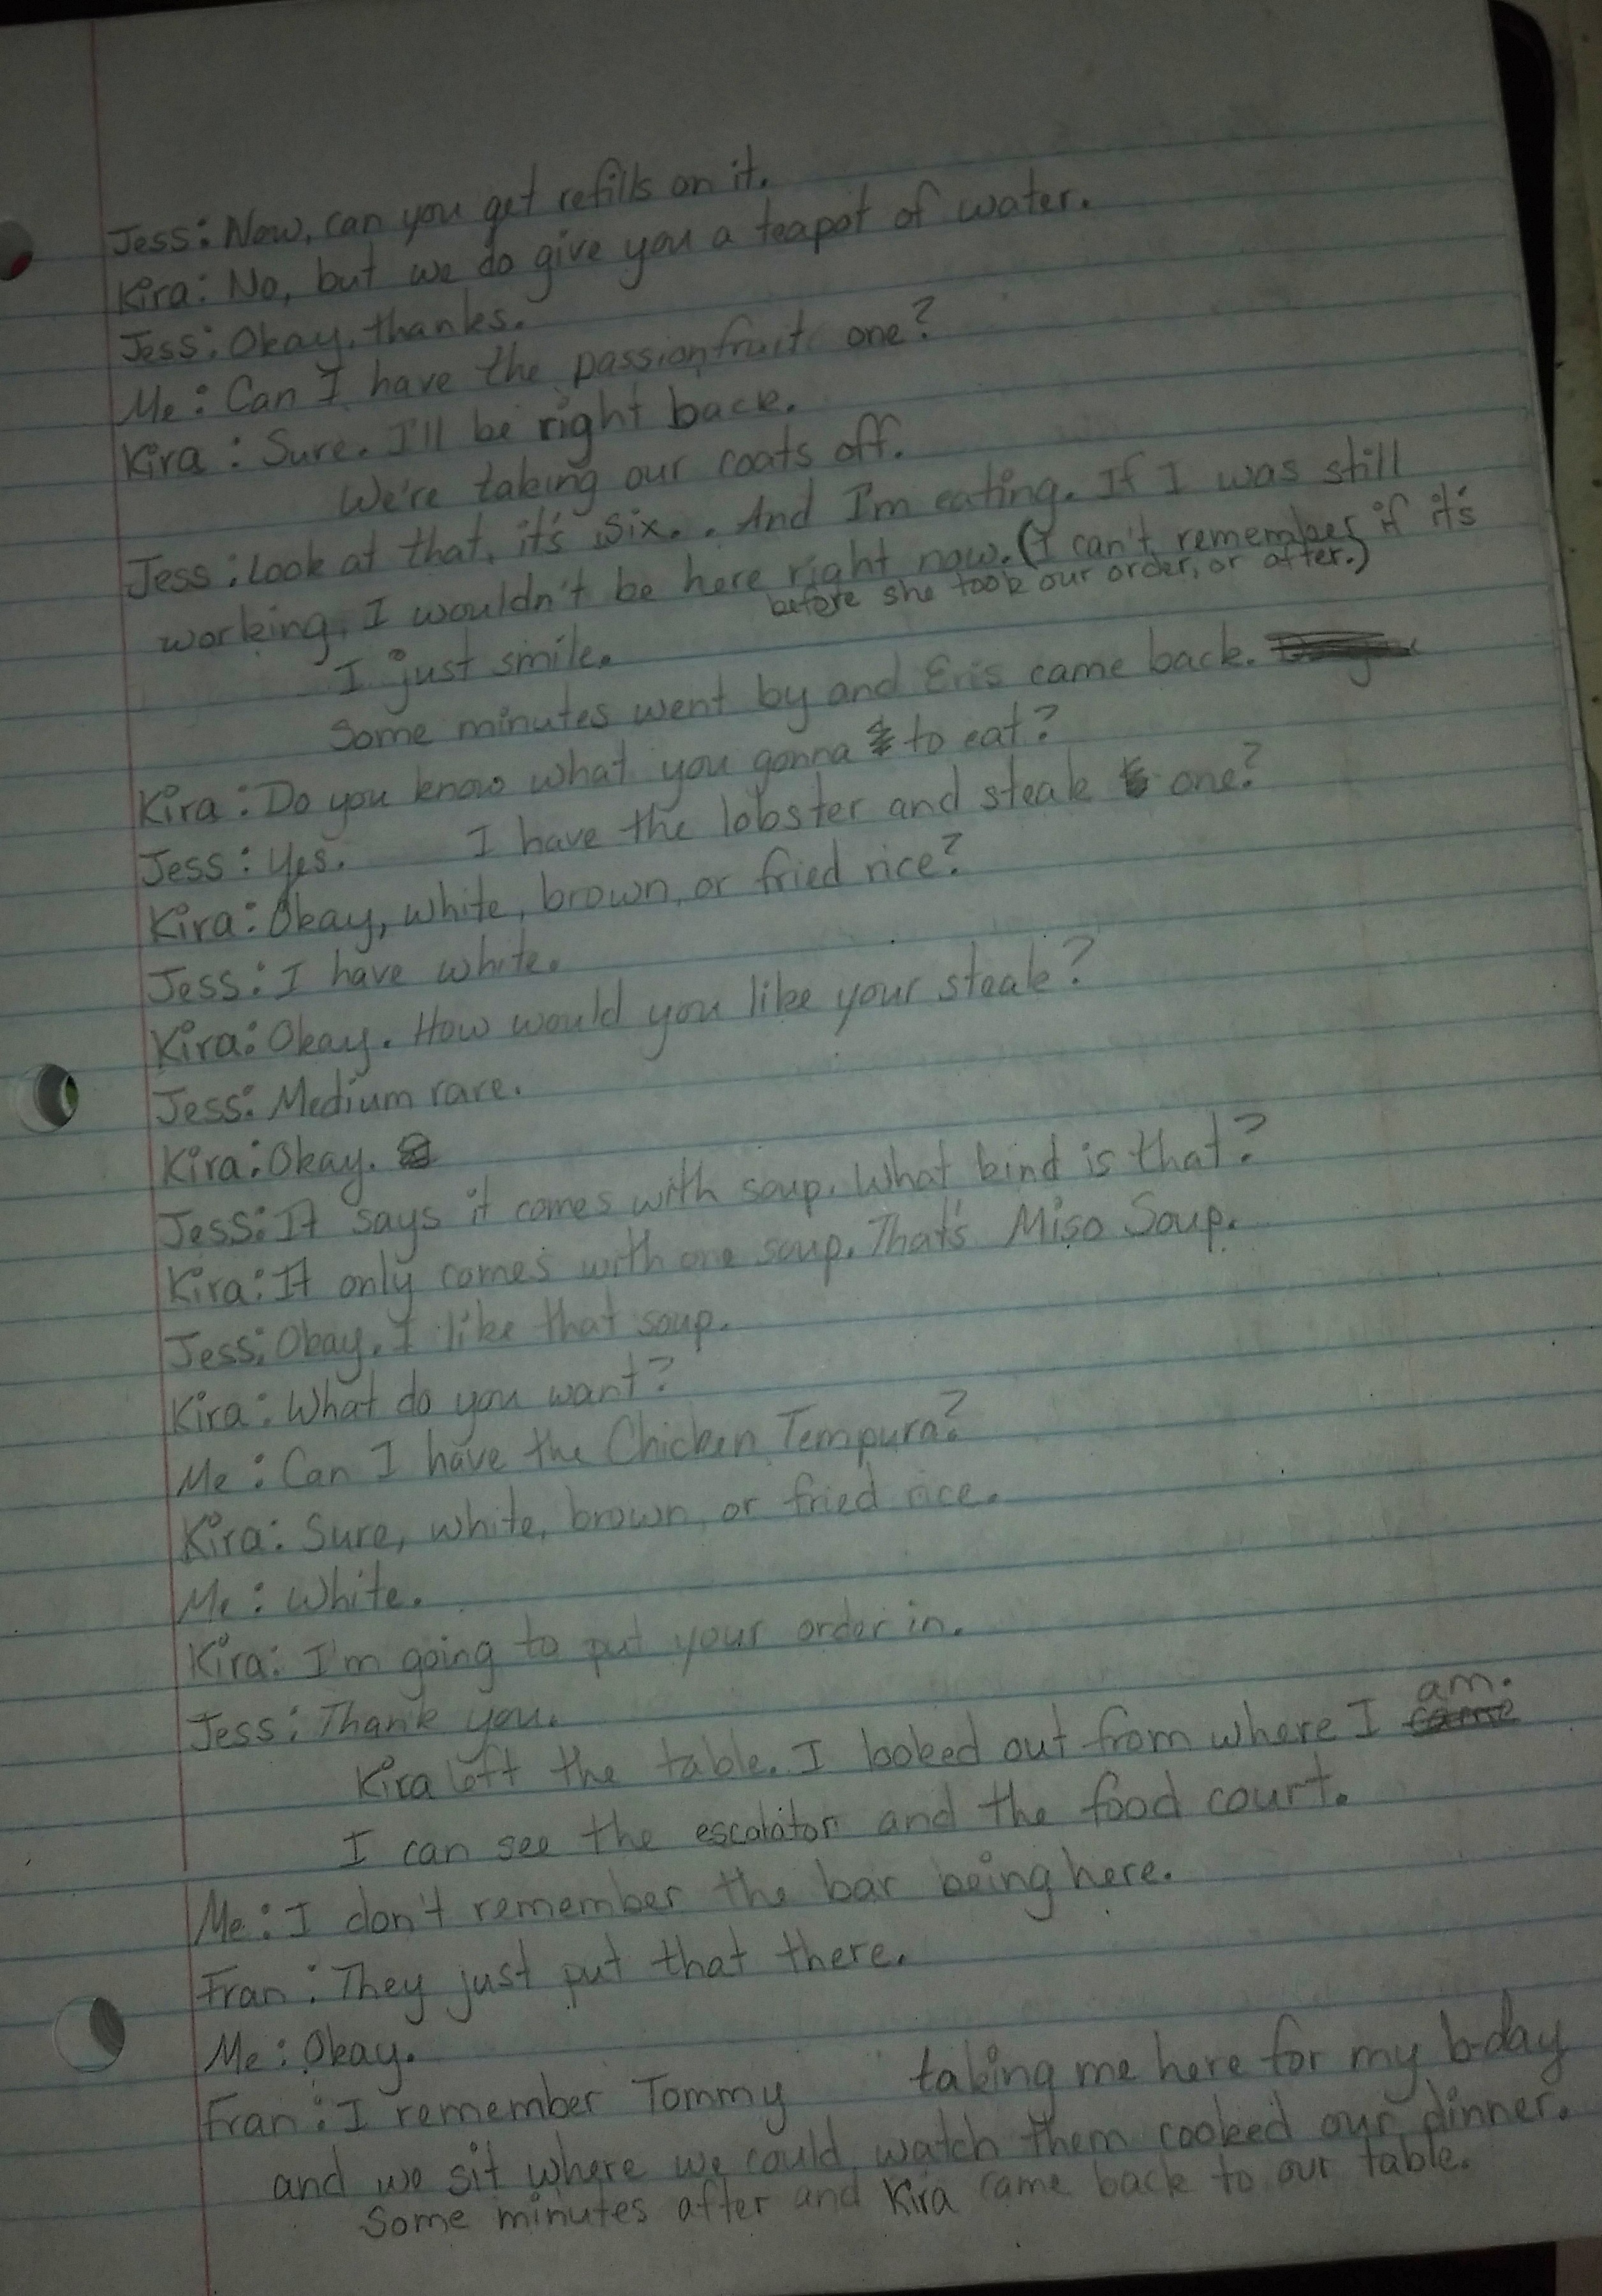 Jess: Now, can you get refills on it.
Kira: No, but we do give you a teapot of water.
Jess: Okay, thanks.
Me: Can I have the passionfruit one?
Kira: Sure. I'll be right back.
We're taking our coats off.
Jess: Look at that, it's six.. And I'm eating. If I was still
working, I wouldn't be here right now. (I can't remember if it's
before she took our order, or after.)
I just smile.
Some minutes went by and Eris came back.
Kira: Do you know what you gonna to eat?
Jess: Yes. I have the lobster and steak one?
Kira: Okay, white, brown, or fried rice?
Jess: I have white.
Kira: Okay. How would you like your steak?
Jess: Medium rare.
Kira: Okay.
Jess: It says it comes with soup. What kind is that?
Kira: It only comes with one soup. That's Miso Soup.
Jess: Okay. I like that soup.
Kira: What do you want?
Me: Can I have the Chicken Tempura?
Kira: Sure, white, brown, or fried rice.
Me: White.
Kira: I'm going to put your order in.
Jess: Thank you.
Kira left the table. I looked out from where I am.
I can see the escalator and the food court.
Me: I don't remember the bar being here.
Fran: They just put that there.
Me: Okay.
Fran: I remember Tommy taking me here for my b-day
and we sit where we could watch them cooked our dinner.
Some minutes after and Kira came back to our table.